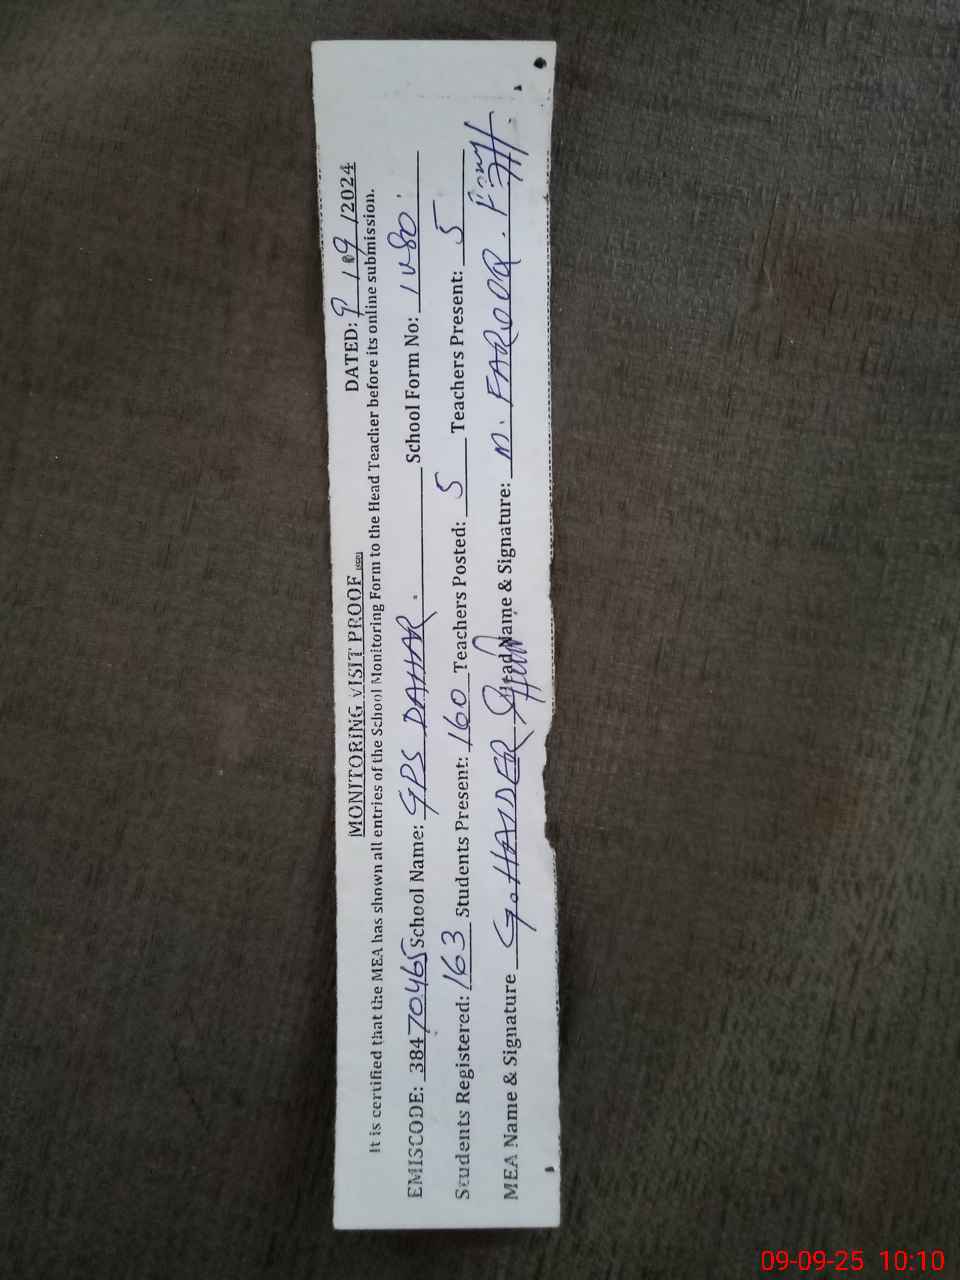 MONITORING VISIT PROOF
DATED: 9/09/2024
It is certified that the MEA has shown all entries of the School Monitoring Form to the Head Teacher before its online submission.
EMISCODE: 38470465 School Name: GPS DAHAR. School Form No:
Students Registered: 163 Students Present: 160 Teachers Posted: 5 Teachers Present: 5
MEA Name & Signature G. HAIDER Head Name & Signature: M. FAROOQ.
09-09-25 10:10